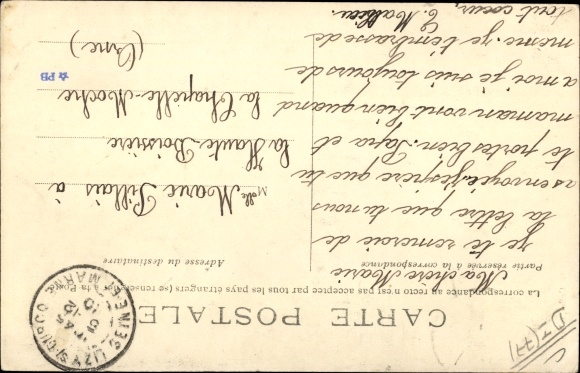 CARTE POSTALE
La correspondance au recto n'est pas acceptée par tous les pays étrangers (se renseigner à la Poste)
Partie réservée à la correspondance
Adresse du destinataire
Ma chère Marie
je te remercie de
la lettre que tu nous
as envoyé j'espère que tu
te portes bien. Papa et
maman vont bien quand
a moi je suis toujours de
même. je t'embrasse de
tout cœur,
Mdlle Marie Pillais à
la Haute-Boissière
la Chapelle-Moche
(Orne)
PB
LIZY-S-OURCQ
SEINE-ET-MARNE
(77)